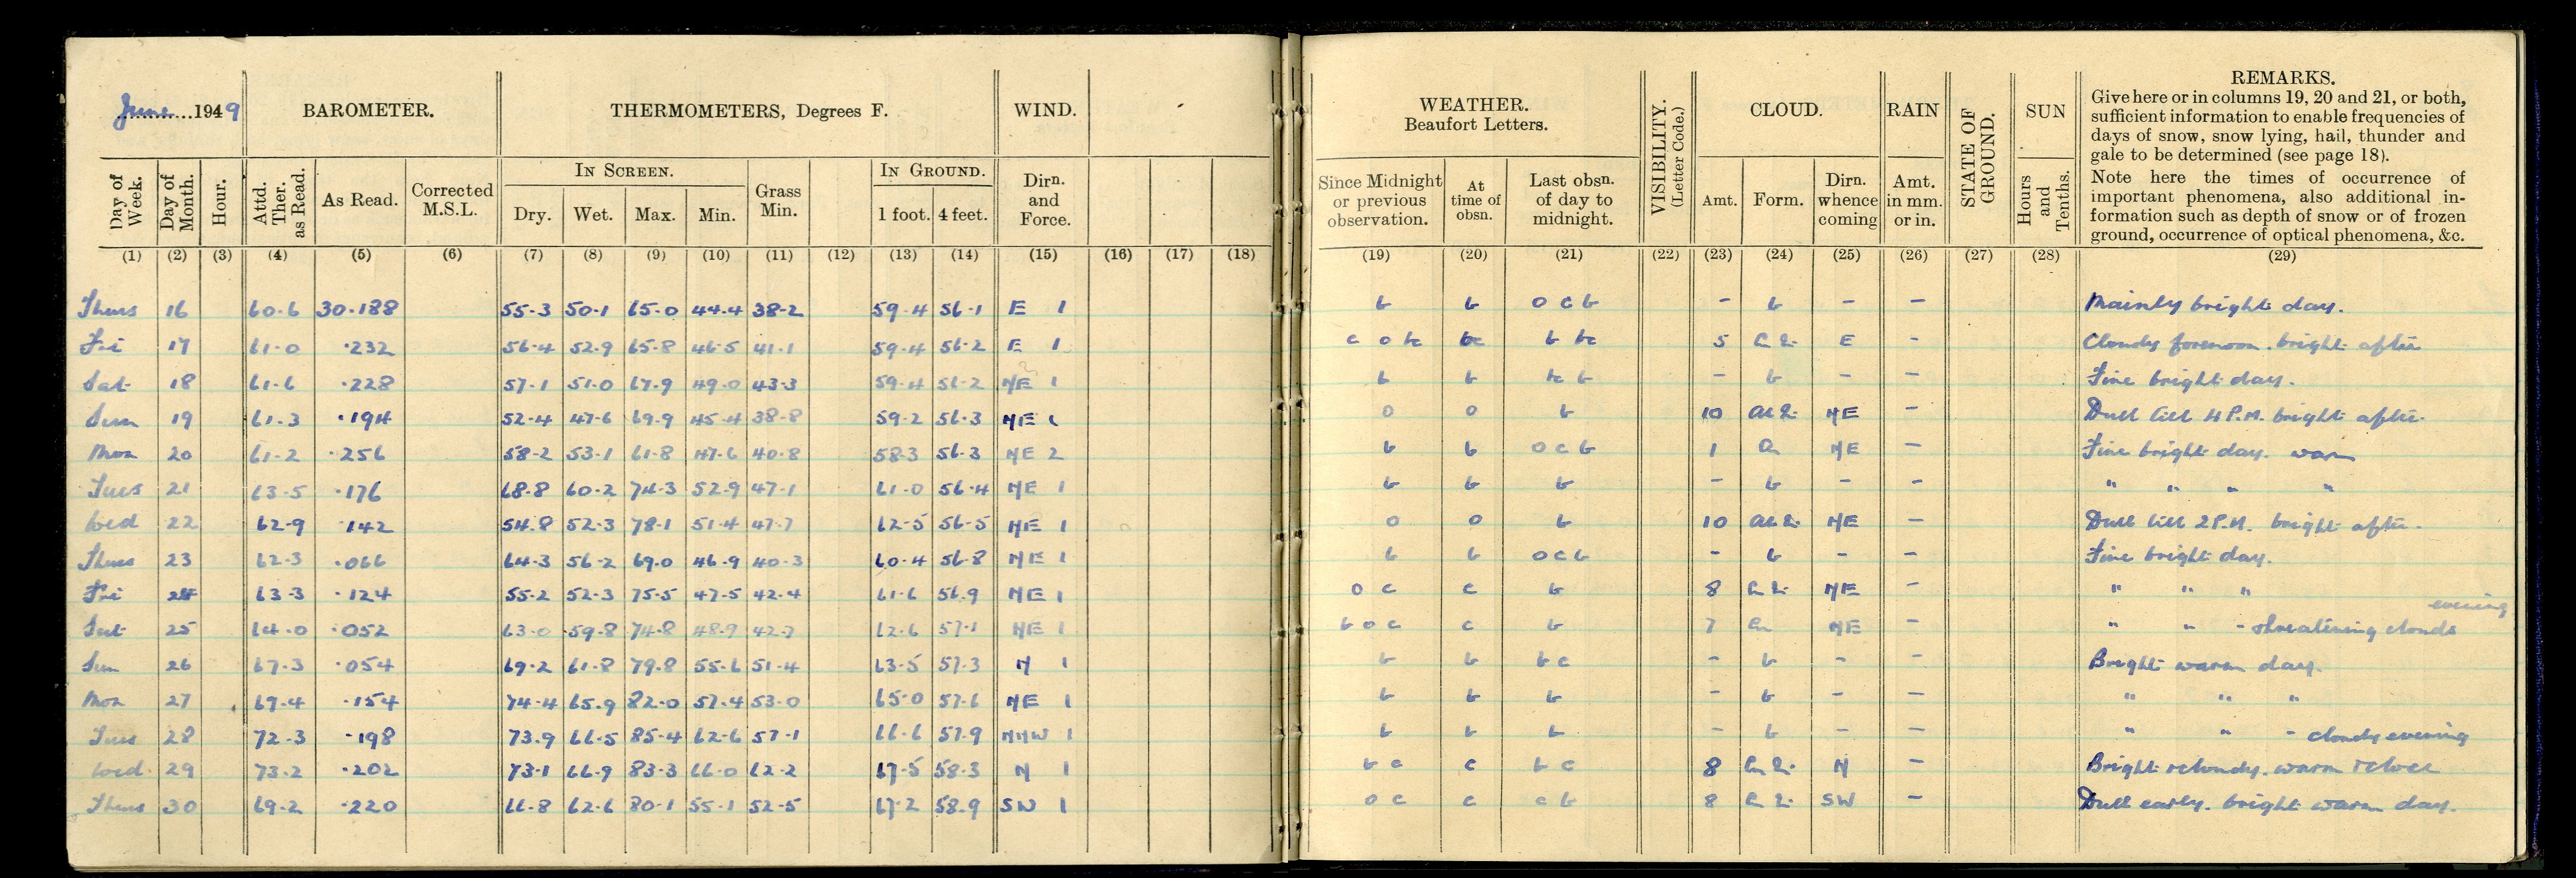 June 1949 BAROMETER. THERMOMETERS, Degrees F. WIND. WEATHER. Beaufort Letters. VISIBILITY. (Letter Code.) CLOUD. RAIN STATE OF GROUND. SUN REMARKS.
Give here or in columns 19, 20 and 21, or both,
sufficient information to enable frequencies of
days of snow, snow lying, hail, thunder and
gale to be determined (see page 18).
Note here the times of occurrence of
important phenomena, also additional in-
formation such as depth of snow or of frozen
ground, occurrence of optical phenomena, &c.
Day of Week. Day of Month. Hour. Attd. Ther. as Read. As Read. Corrected M.S.L. IN SCREEN. Dry. Wet. Max. Min. Grass Min. IN GROUND. 1 foot. 4 feet. Dirn. and Force. Since Midnight or previous observation. At time of obsn. Last obsn. of day to midnight. Amt. Form. Dirn. whence coming Amt. in mm. or in. Hours and Tenths.
(1) (2) (3) (4) (5) (6) (7) (8) (9) (10) (11) (12) (13) (14) (15) (16) (17) (18) (19) (20) (21) (22) (23) (24) (25) (26) (27) (28) (29)
Thurs 16 60.6 30.188 55.3 50.1 65.0 44.4 38.2 59.4 56.1 E 1 b b o c b - b - - Mainly bright day.
Fri 17 61.0 .232 56.4 52.9 65.8 46.5 41.1 59.4 56.2 E 1 c o bc bc b bc 5 E - Cloudy forenoon. bright after
Sat 18 61.6 .228 57.1 51.0 67.9 49.0 43.3 59.4 56.2 NE 1 b b bc b - b - - Fine bright day.
Sun 19 61.3 .194 52.4 47.6 69.9 45.4 38.8 59.2 56.3 NE 1 o o b 10 NE - Dull till 4 P.M. bright after.
Mon 20 61.2 .256 58.2 53.1 61.8 47.6 40.8 58.3 56.3 NE 2 b b o c b 1 NE - Fine bright day. warm
Tues 21 63.5 .176 68.8 60.2 74.3 52.9 47.1 61.0 56.4 NE 1 b b b - b - - " " " "
Wed 22 62.9 .142 54.8 52.3 78.1 51.4 47.7 62.5 56.5 NE 1 o o b 10 NE - Dull till 2 P.M. bright after.
Thurs 23 62.3 .066 64.3 56.2 69.0 46.9 40.3 60.4 56.8 NE 1 b b o c b - b - - Fine bright day.
Fri 24 63.3 .124 55.2 52.3 75.5 47.5 42.4 61.6 56.9 NE 1 o c c b 8 NE - " " "
Sat 25 64.0 .052 63.0 59.8 74.8 48.9 42.7 62.6 57.1 NE 1 b o c c b 7 NE - " " - threatening clouds evening
Sun 26 67.3 .054 69.2 61.8 79.8 55.6 51.4 63.5 57.3 N 1 b b b c - b - - Bright warm day.
Mon 27 69.4 .154 74.4 65.9 82.0 57.4 53.0 65.0 57.6 NE 1 b b b - b - - " " "
Tues 28 72.3 .198 73.9 66.5 85.4 62.6 57.1 66.6 57.9 NNW 1 b b b - b - - " " - cloudy evening
Wed. 29 73.2 .202 73.1 66.9 83.3 66.0 62.2 67.5 58.3 N 1 b c c b c 8 N - Bright & cloudy. warm
Thurs 30 69.2 .220 66.8 62.6 80.1 55.1 52.5 67.2 58.9 SW 1 o c c c b 8 SW - Dull early. bright warm day.